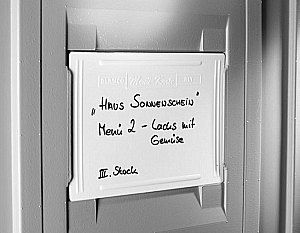 „Haus Sonnenschein"
Menü 2 - Lachs mit
Gemüse
III. Stock